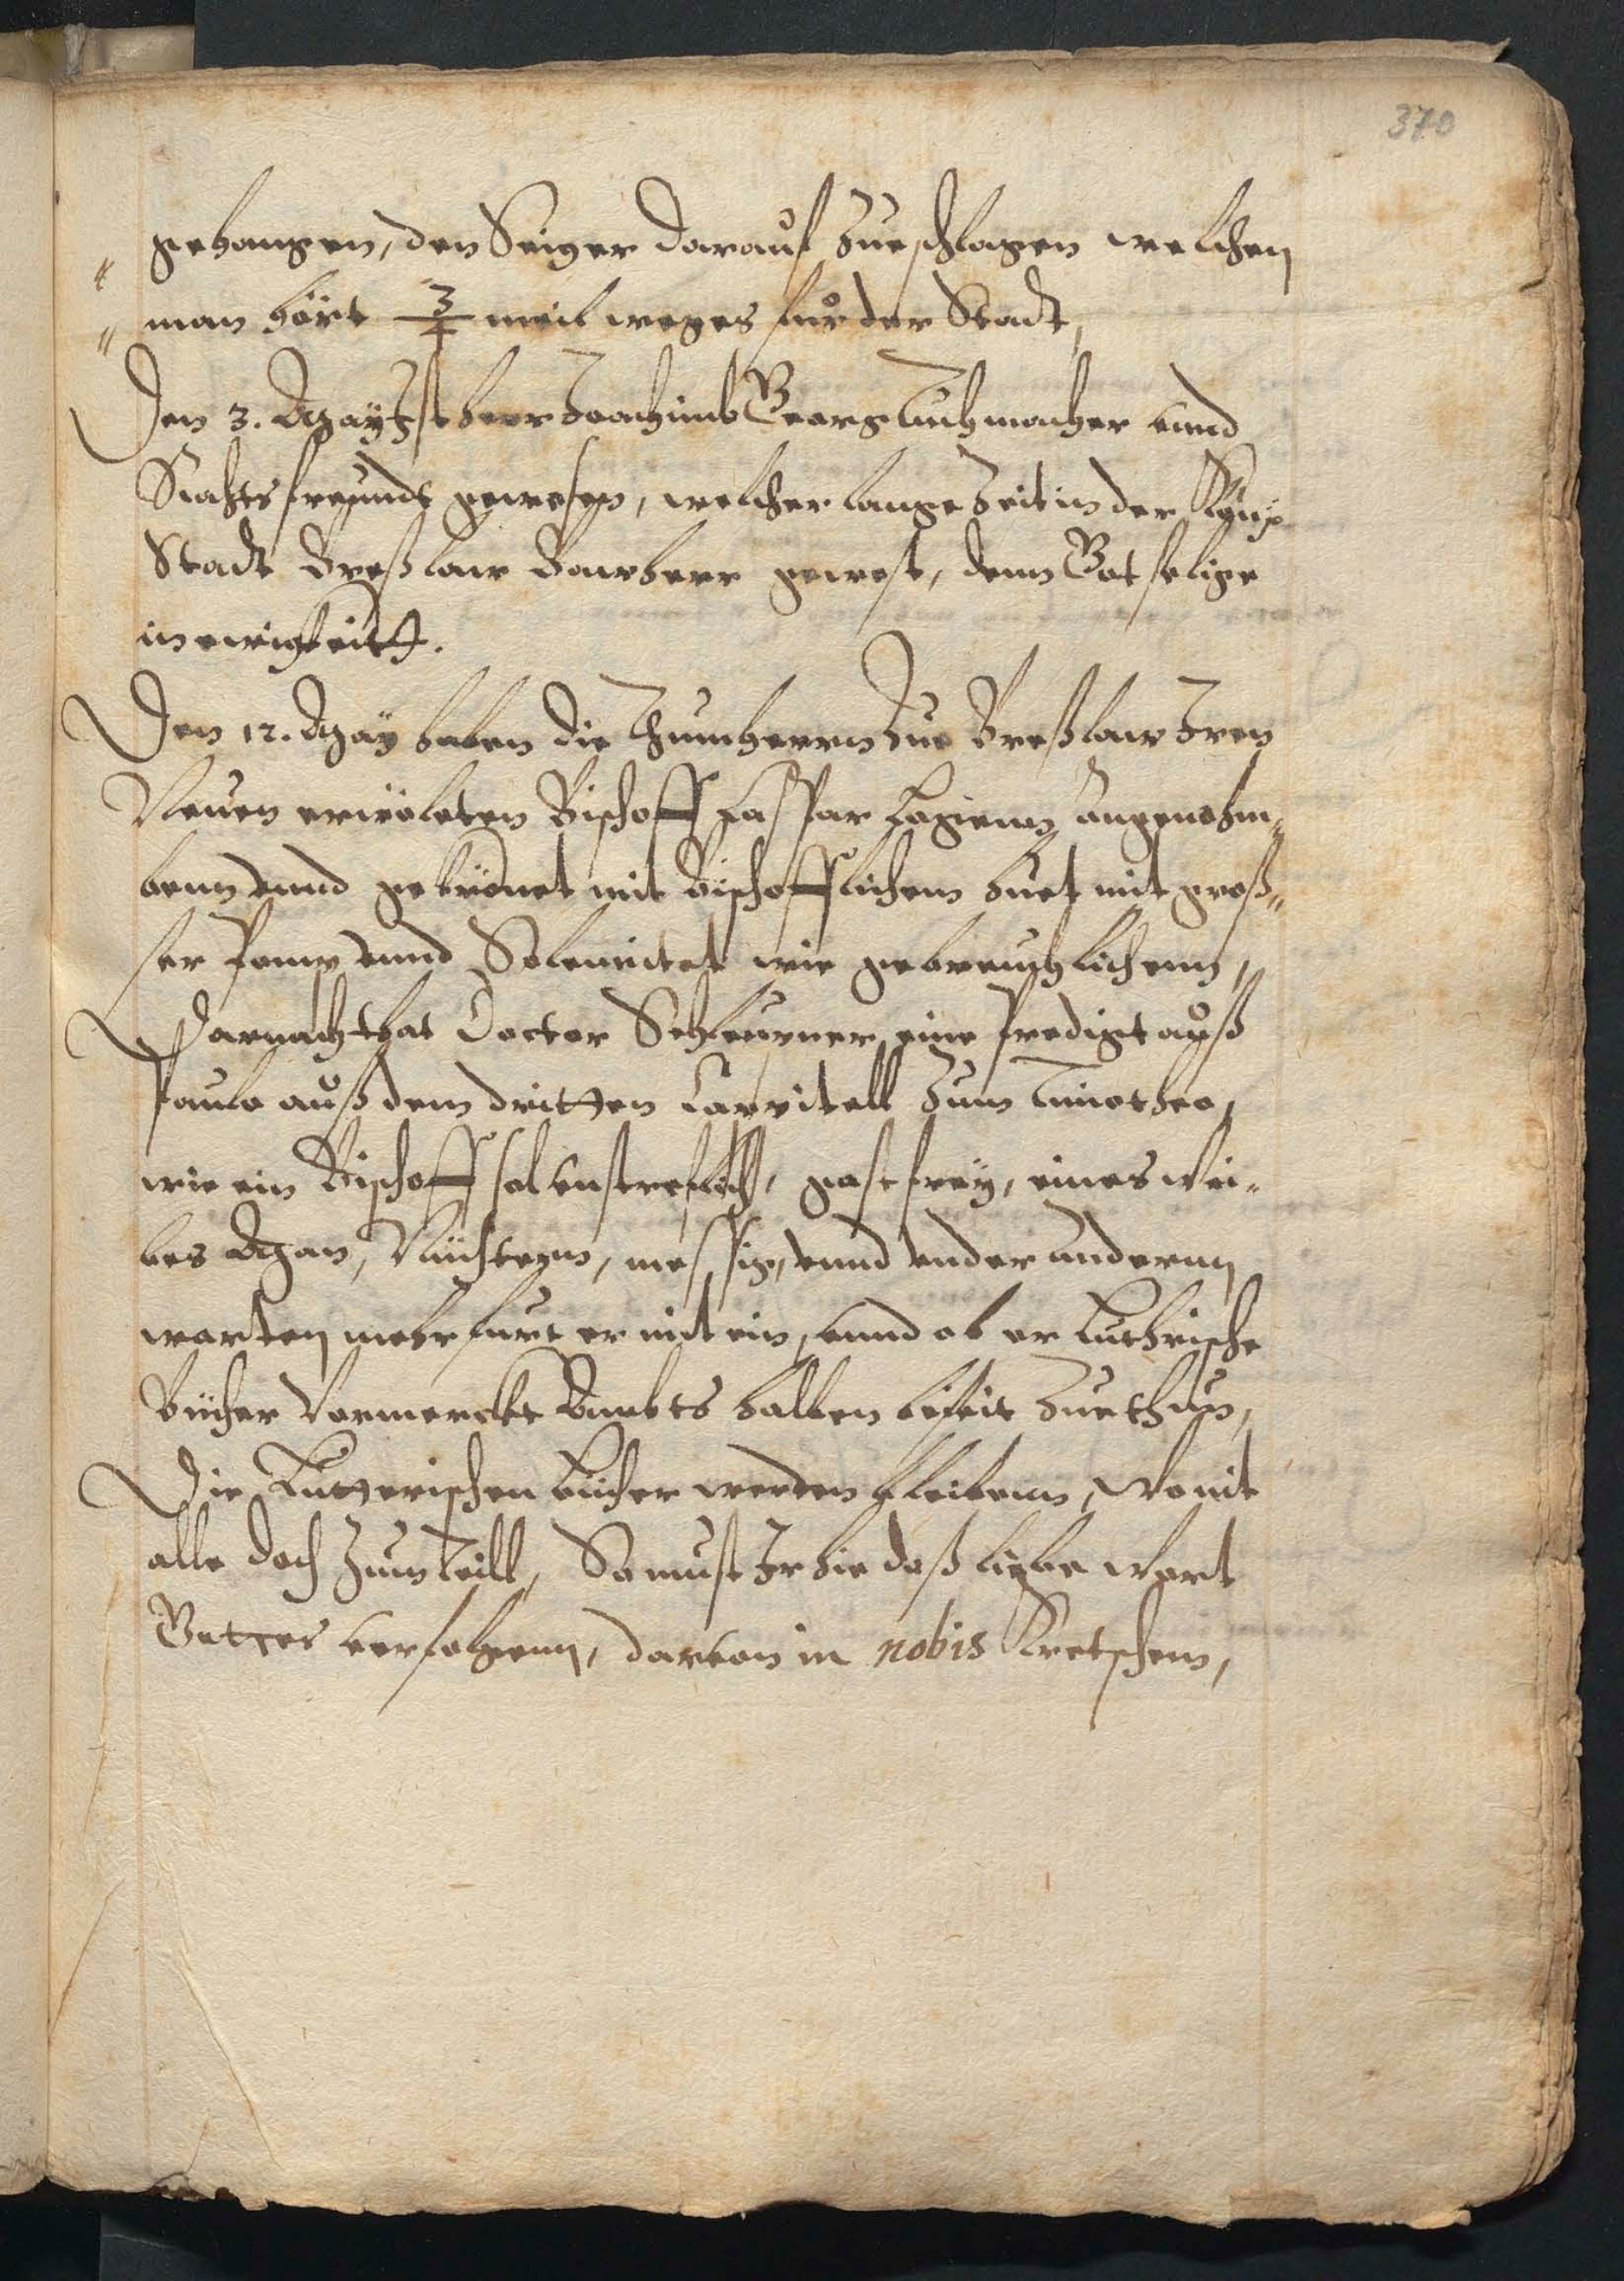 370
gehangen, den Seiger darauf zueschlagen welchen
man hört 3/4 meil weges für der Stadt,
Den 3. May Ist herr Joachimb Georg Tuchmacher vnnd
Rahtsfreundt gewesen, welcher lange Zeit in der
Stadt Breßlaw Bawherr gewest, dem Got selige
in ewigkeitt.
Den 12. May haben die Thumherrn Zue Breßlaw Iren
Neuen erwöleten Bischoff Casspar Logienn angenohm„
benn vnnd gekrönet mit Bischofflichem huet mit groß„
ser Pomp vnnd Solennitet wie gebreuchlichenn,
Darnach that Doctor Schleupner eine Predigt auß
Paulo auß dem dritten Cappitell zum Timotheo,
wie ein Bischoff sol vnstreflich, gastfrey, eines Wei„
bes Man, Nüchternn, messig, vnnd vnder andernn
worten mehr furt er mit ein, vnnd ob er Luthrische
bücher Vormerckt Ambts halben beseit Zuethun,
Die Lutterischen bücher werden bleibenn, Womit
alle doch Zum teill, So must Ir hie daß liebe Wort
Gottes verfolgenn, darvon in nobis Kretschem,